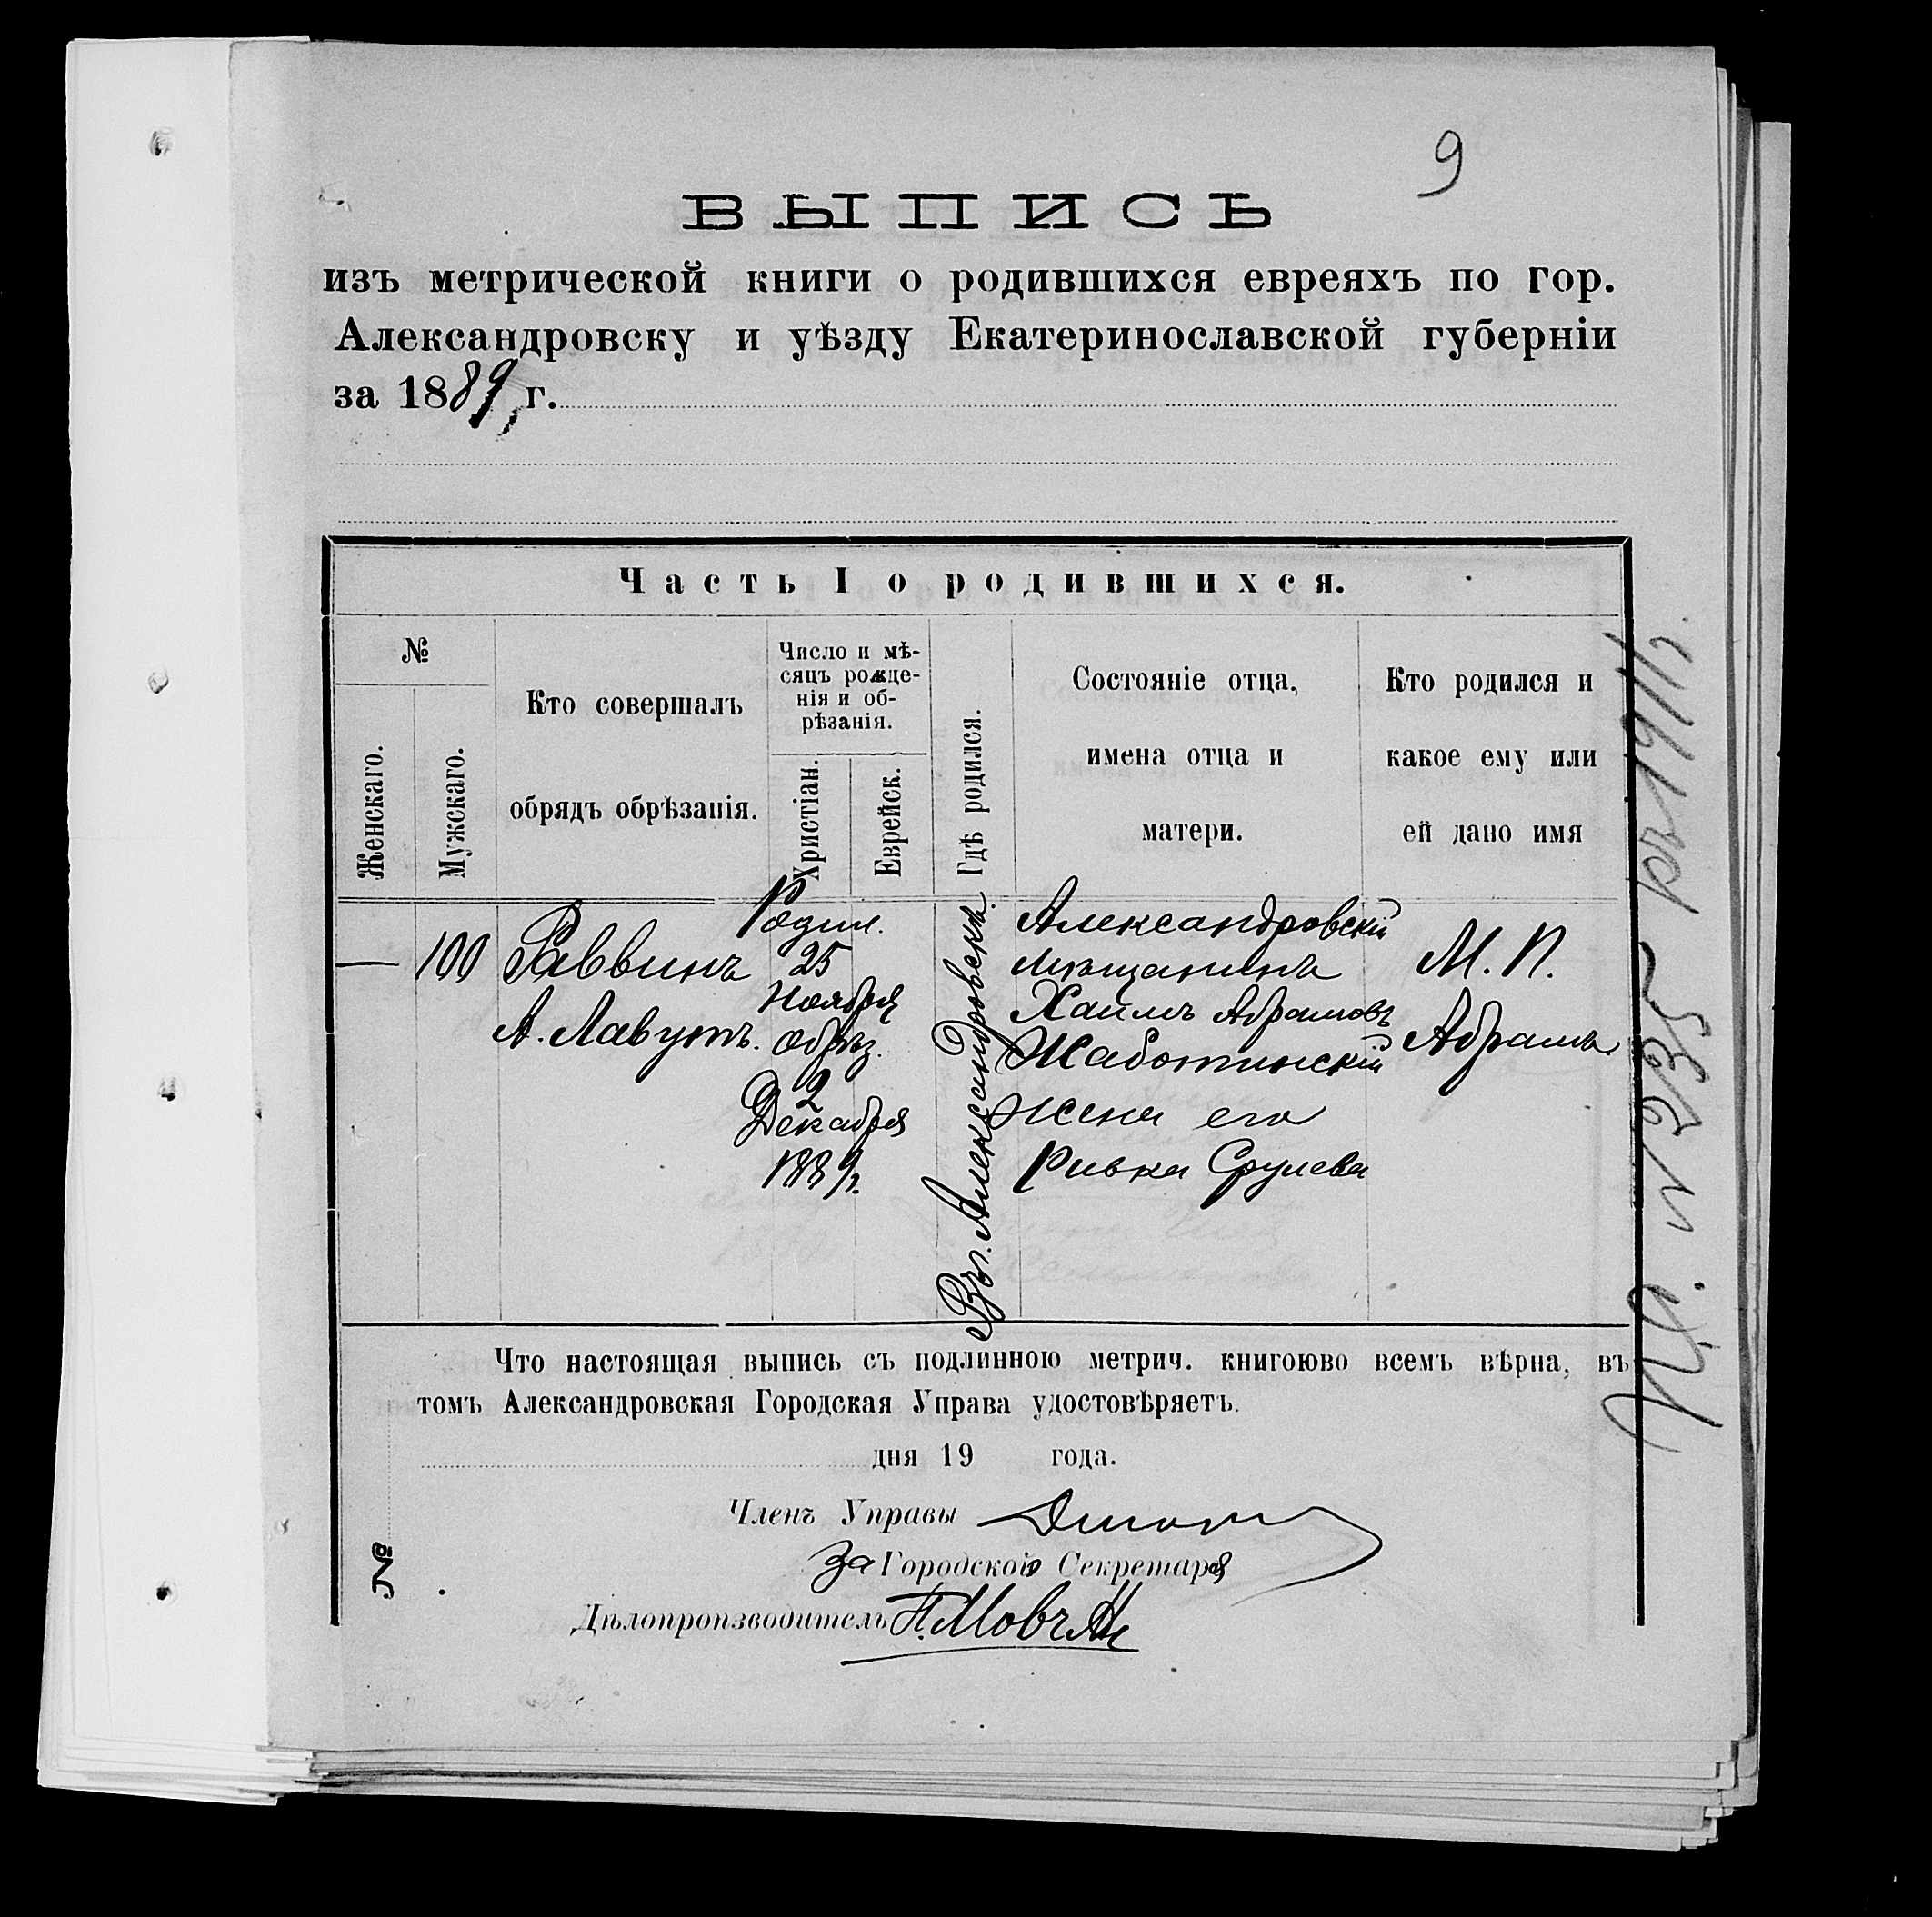 9
ВЫПИСЬ
изъ метрической книги о родившихся евреяхъ по гор.
Александровску и уѣзду Екатеринославской губерніи
за 1889 г.
Часть I о родившихся.
№
Женскаго.
Мужскаго.
Кто совершалъ
обрядъ обрѣзанія.
Число и мѣ-
сяцъ рожде-
нія и об-
рѣзанія.
Христіан.
Еврейск.
Гдѣ родился.
Состояніе отца,
имена отца и
матери.
Кто родился и
какое ему или
ей дано имя
—
100
Раввинъ
А. Лавутъ.
Родил.
25
Ноября
Обрѣз.
2
Декабря
1889 г.
Въ г. Александровскѣ
Александровскій
мѣщанинъ
Хаимъ Абрамовъ
Жаботинскій
Жена его
Ривка Срулева
М. П.
Абрамъ
Что настоящая выпись съ подлинною метрич. книгоюво всемъ вѣрна, въ
томъ Александровская Городская Управа удостовѣряетъ.
дня 19 года.
Членъ Управы
За Городского Секретаря
Дѣлопроизводитель Н. Мовчан
№
№ 235 къ 1911 г.